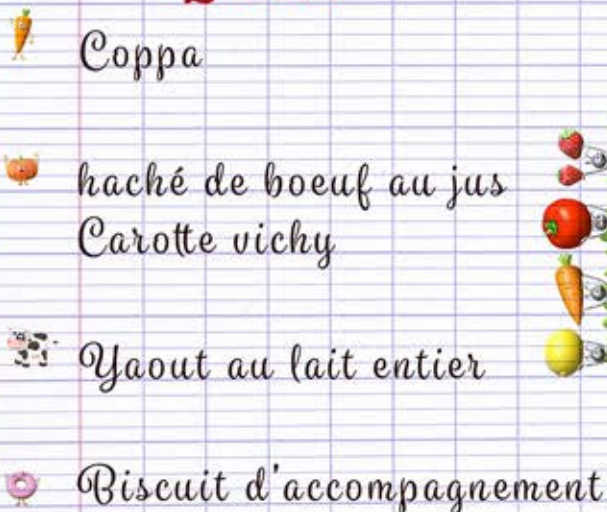 Coppa
haché de boeuf au jus
Carotte vichy
Yaout au lait entier
Biscuit d'accompagnement